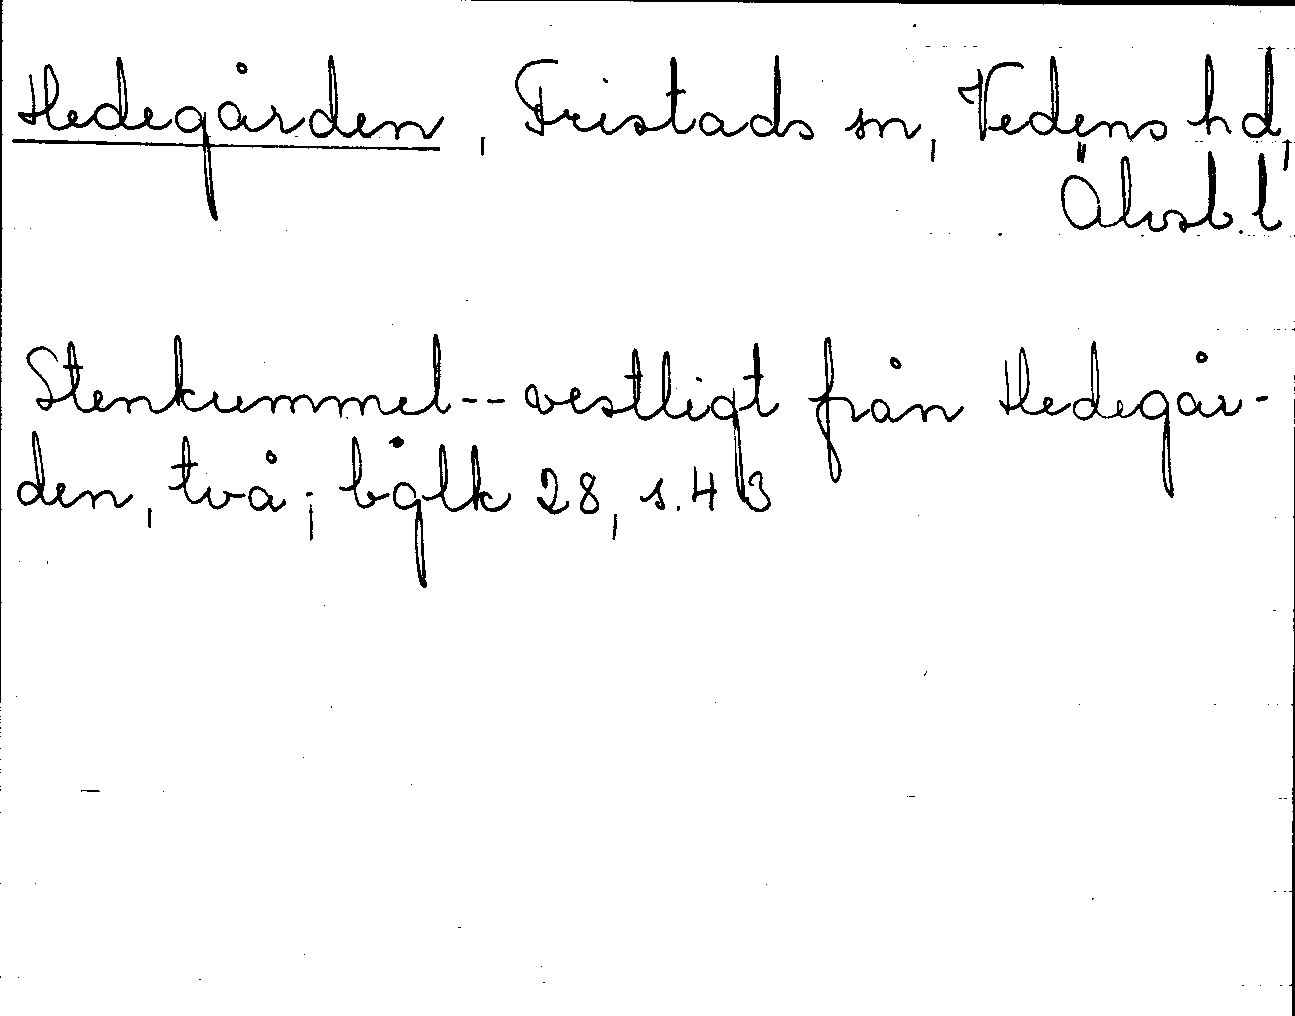 Hedegården, Fristads sn, Vedens hd,
Älvsb. l
Stenkummel -- vestligt från Hedegår-
den, två; bålk 28, s. 43